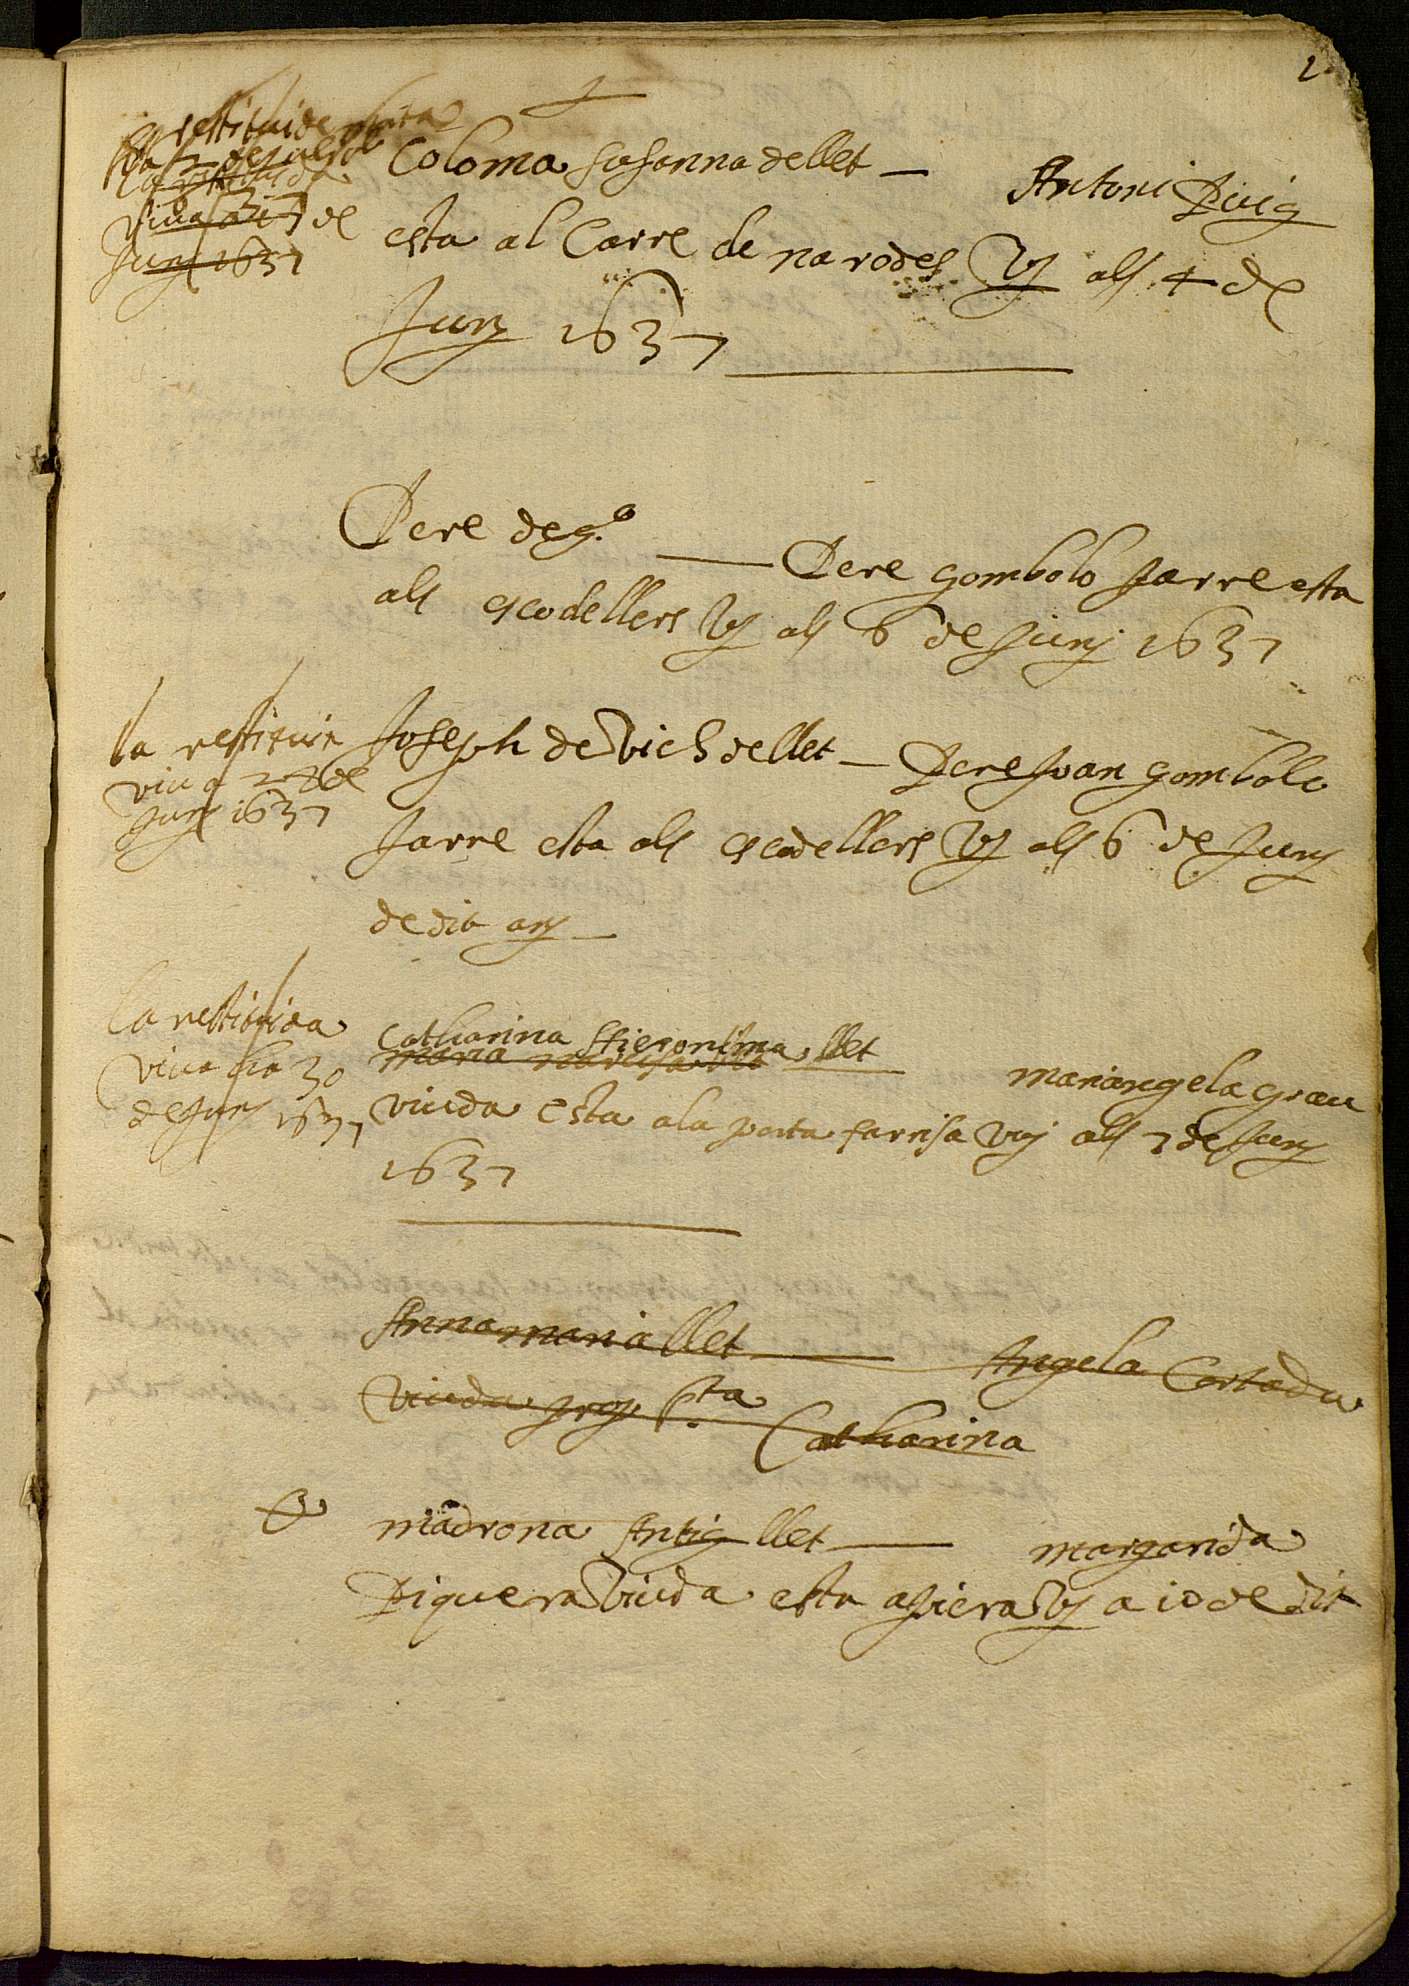 2
restituide morta
la restituida
viva a 17 de
Juny 1637
Coloma Sosanna de llet — Antoni Puig
esta al Carre de na rodes vuy als 4 de
Juny 1637
Pere de g.ª — Pere gombolo Jarre esta
als escodellers vuy als 6 de Juny 1637
la restituin
viu a 27 de
Juny 1637
Joseph de Vich de llet — Pere Joan gombolo
Jarre esta als escodellers vuy als 6 de Juny
de dit any
la restituida
viva ha 30
de Juny 1637
Catharina Hieronima llet
maria narcisa mariangela grau
viuda esta a la porta farrisa vuy als 7 de Juny
1637
Anna maria llet — Angela Cortada
viuda prop Sta Catharina
madrona Antig llet — margarida
Piquera viuda esta a piera vuy a 10 de dit